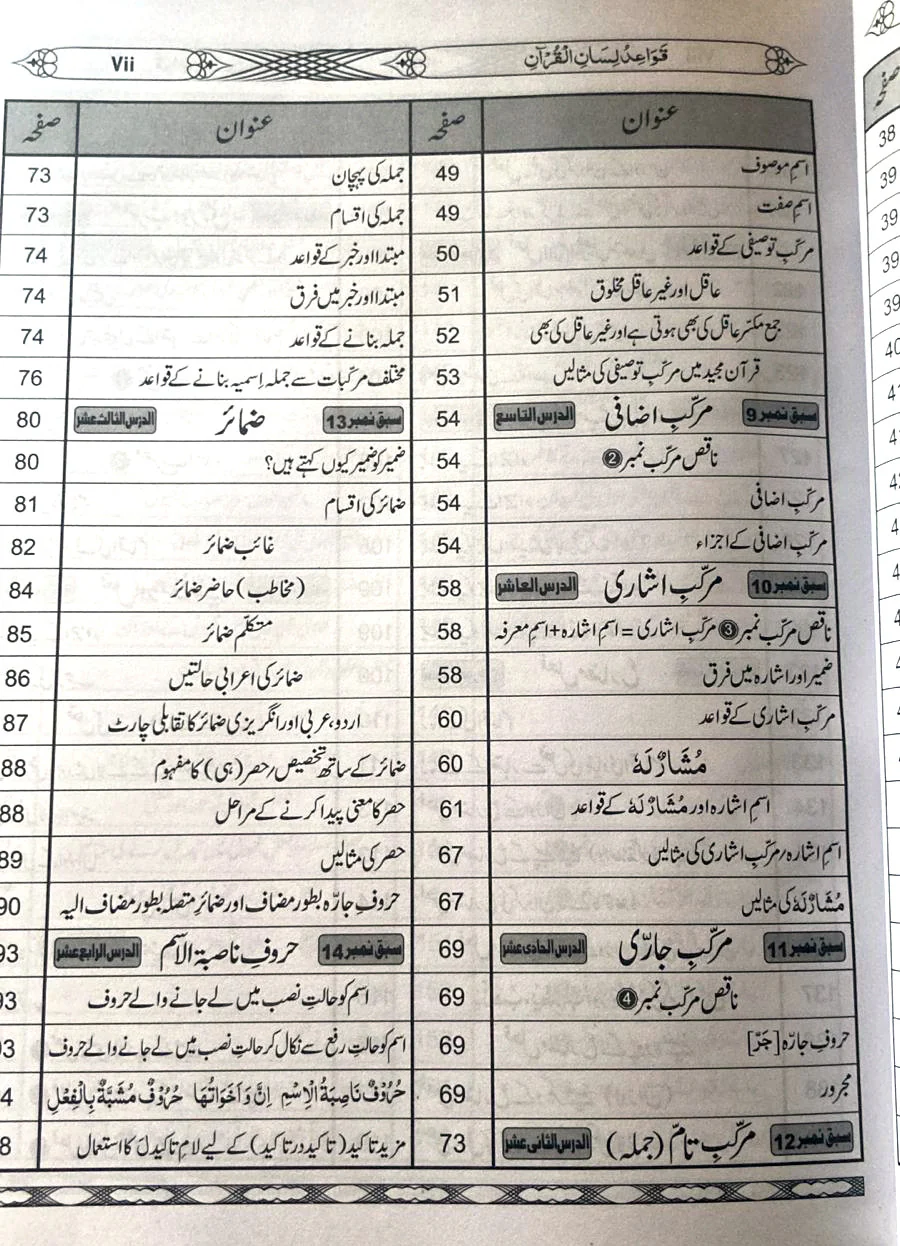 قَوَاعِدُ لِسَانِ الْقُرْآنِ Vii
عنوان صفحہ
اسمِ موصوف 49
اسمِ صفت 49
مرکّبِ توصیفی کے قواعد 50
عاقل اور غیر عاقل مخلوق 51
جمع مکسّر عاقل کی بھی ہوتی ہے اور غیر عاقل کی بھی 52
قرآن مجید میں مرکّبِ توصیفی کی مثالیں 53
سبق نمبر 9 مرکّبِ اضافی الدرس التاسع 54
ناقص مرکّب نمبر ❷ 54
مرکّبِ اضافی 54
مرکّبِ اضافی کے اجزاء 54
سبق نمبر 10 مرکّبِ اشاری الدرس العاشر 58
ناقص مرکّب نمبر ❸ مرکّبِ اشاری = اسمِ اشارہ + اسمِ معرفہ 58
ضمیر اور اشارہ میں فرق 58
مرکّبِ اشاری کے قواعد 60
مُشَارٌ لَهٗ 60
اسمِ اشارہ اور مُشَارٌ لَهٗ کے قواعد 61
اسمِ اشارہ/مرکّبِ اشاری کی مثالیں 67
مُشَارٌ لَهٗ کی مثالیں 67
سبق نمبر 11 مرکّبِ جارّی الدرس الحادی عشر 69
ناقص مرکّب نمبر ❹ 69
حروفِ جارّہ [جَرّ] 69
مجرور 69
سبق نمبر 12 مرکّبِ تامّ (جملہ) الدرس الثانی عشر 73
عنوان صفحہ
جملہ کی پہچان 73
جملہ کی اقسام 73
مبتدا اور خبر کے قواعد 74
مبتدا اور خبر میں فرق 74
جملہ بنانے کے قواعد 74
مختلف مرکّبات سے جملہ اِسمیہ بنانے کے قواعد 76
سبق نمبر 13 ضمائر الدرس الثالث عشر 80
ضمیر کو ضمیر کیوں کہتے ہیں؟ 80
ضمائر کی اقسام 81
غائب ضمائر 82
(مخاطب) حاضر ضمائر 84
متکلّم ضمائر 85
ضمائر کی اعرابی حالتیں 86
اردو، عربی اور انگریزی ضمائر کا تقابلی چارٹ 87
ضمائر کے ساتھ تخصیص/حصر (ہی) کا مفہوم 88
حصر کا معنی پیدا کرنے کے مراحل 88
حصر کی مثالیں 89
حروفِ جارّہ بطور مضاف اور ضمائرِ متصلہ بطور مضاف الیہ 90
سبق نمبر 14 حروفِ ناصبۃ الاسم الدرس الرابع عشر 93
اسم کو حالتِ نصب میں لے جانے والے حروف 93
اسم کو حالتِ رفع سے نکال کر حالتِ نصب میں لے جانے والے حروف 93
حُرُوْفٌ نَاصِبَةُ الْاِسْمِ اِنَّ وَاَخَوَاتُهَا حُرُوْفٌ مُشَبَّةٌ بِالْفِعْلِ 4
مزید تاکید (تاکید در تاکید) کے لیے لامِ تاکید لَ کا استعمال 8
صفحہ
38
39
39
39
39